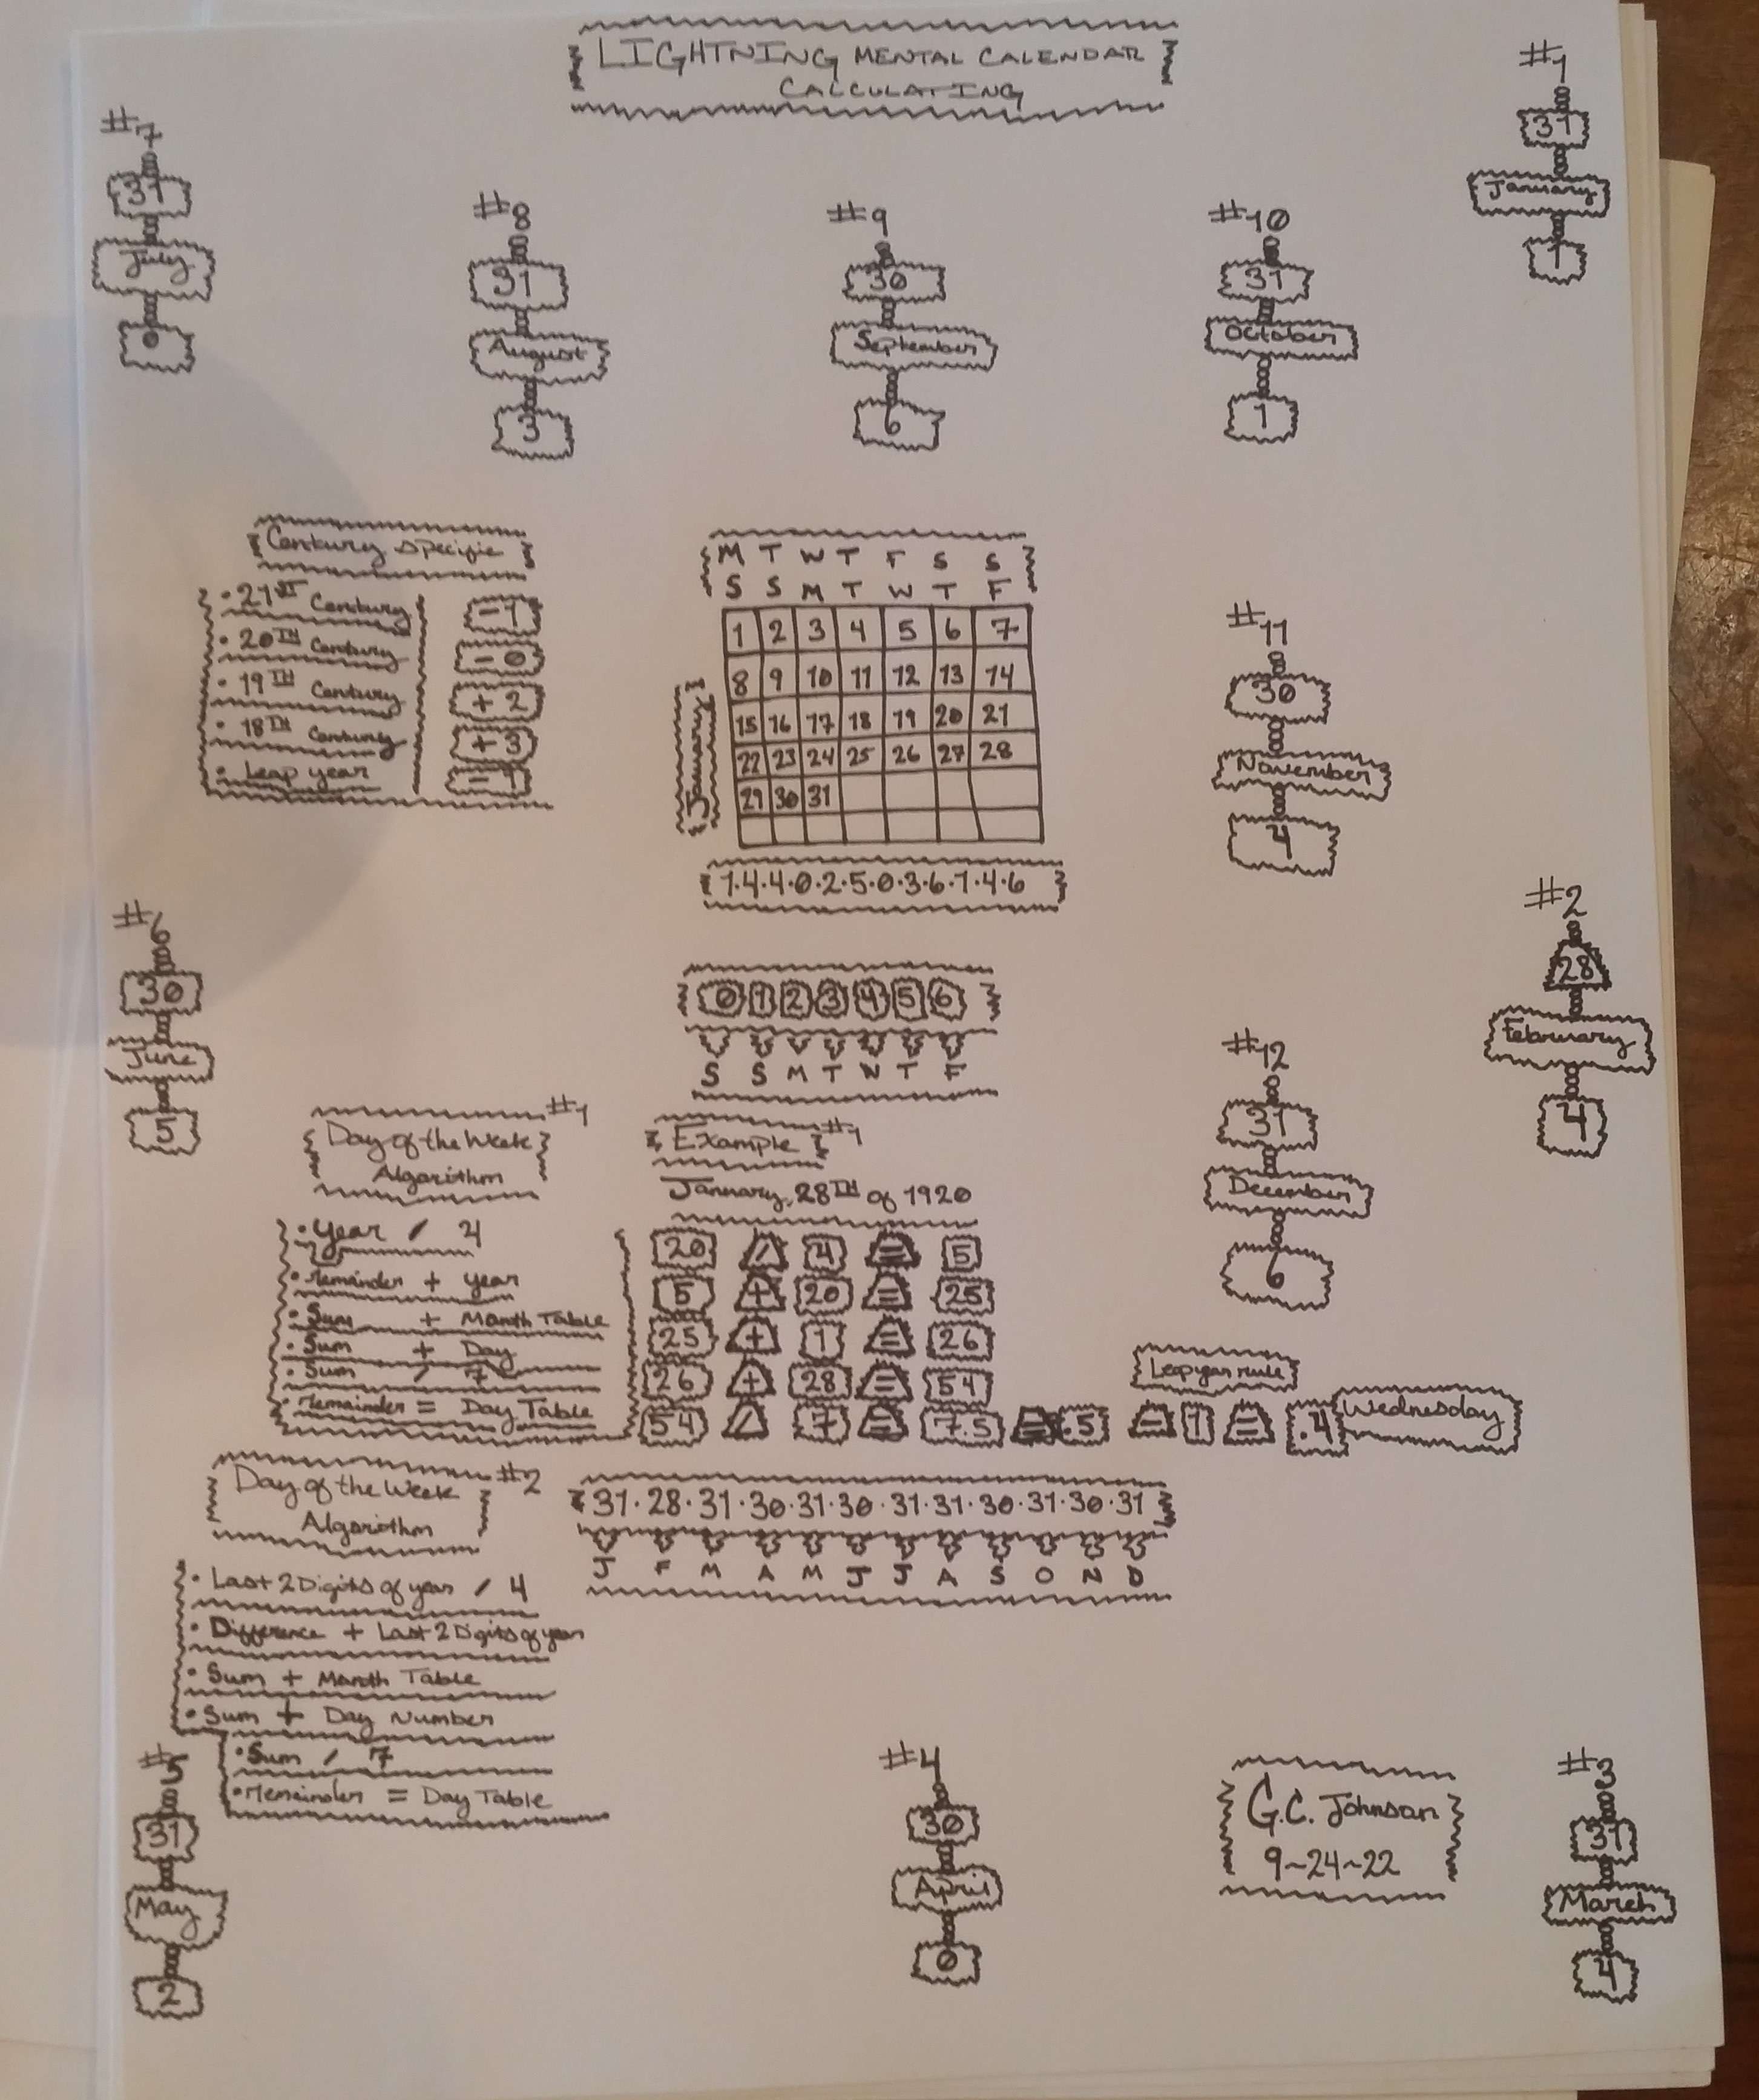 LIGHTNING MENTAL CALENDAR
CALCULATING
#1
31
January
1
#7
31
July
0
#8
31
August
3
#9
30
September
6
#10
31
October
1
Century Specific
• 21ST Century -1
• 20TH Century -0
• 19TH Century +2
• 18TH Century +3
• Leap year -1
M T W T F S S
S S M T W T F
January
1 2 3 4 5 6 7
8 9 10 11 12 13 14
15 16 17 18 19 20 21
22 23 24 25 26 27 28
29 30 31
1·4·4·0·2·5·0·3·6·1·4·6
#11
30
November
4
#2
28
February
4
#6
30
June
5
0 1 2 3 4 5 6
S S M T W T F
#12
31
December
6
Day of the Week #1
Algorithm
• Year / 4
• Remainder + year
• Sum + Month Table
• Sum + Day
• Sum / 7
• Remainder = Day Table
Example #1
January, 28TH of 1920
20 / 4 = 5
5 + 20 = 25
25 + 1 = 26
26 + 28 = 54
Leap year rule
54 / 7 = 7.5 = .5 = 1 = .4 Wednesday
Day of the Week #2
Algorithm
• Last 2 Digits of year / 4
• Difference + Last 2 Digits of year
• Sum + Month Table
• Sum + Day Number
• Sum / 7
• Remainder = Day Table
31·28·31·30·31·30·31·31·30·31·30·31
J F M A M J J A S O N D
#5
31
May
2
#4
30
April
0
G.C. Johnson
9~24~22
#3
31
March
4